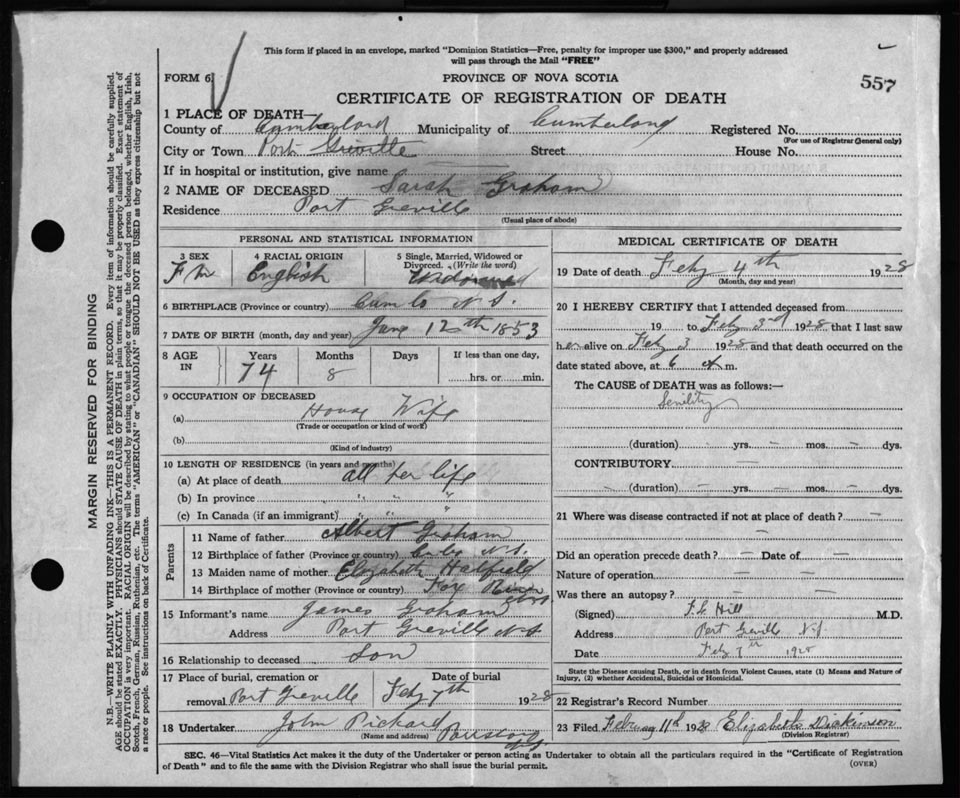 This form if placed in an envelope, marked "Dominion Statistics—Free, penalty for improper use $300," and properly addressed
will pass through the Mail "FREE"
FORM 6 PROVINCE OF NOVA SCOTIA 557
CERTIFICATE OF REGISTRATION OF DEATH
1 PLACE OF DEATH—
County of Cumberland Municipality of Cumberland Registered No.
(For use of Registrar General only)
City or Town Port Greville Street House No.
If in hospital or institution, give name
2 NAME OF DECEASED Sarah Graham
Residence Port Greville
(Usual place of abode)
PERSONAL AND STATISTICAL INFORMATION
3 SEX 4 RACIAL ORIGIN 5 Single, Married, Widowed or
Divorced. (Write the word)
Fm English Widowed
6 BIRTHPLACE (Province or country) Cumb Co N.S.
7 DATE OF BIRTH (month, day and year) June 12th 1853
8 AGE IN Years Months Days If less than one day,
74 8 hrs. or min.
9 OCCUPATION OF DECEASED
(a) House Wife
(Trade or occupation or kind of work)
(b)
(Kind of industry)
10 LENGTH OF RESIDENCE (in years and months)
(a) At place of death all her life
(b) In province " " " "
(c) In Canada (if an immigrant) " " "
Parents
11 Name of father Albert Graham
12 Birthplace of father (Province or country) N.S.
13 Maiden name of mother Elizabeth Hatfield
14 Birthplace of mother (Province or country) Fox River
15 Informant's name James Graham
Address Port Greville N.S.
16 Relationship to deceased Son
17 Place of burial, cremation or Date of burial
removal Port Greville Feby 7th 1928
18 Undertaker John Pickard
(Name and address)
MEDICAL CERTIFICATE OF DEATH
19 Date of death Feby 4th 1928
(Month, day and year)
20 I HEREBY CERTIFY that I attended deceased from
19 to Feby 3rd 1928 that I last saw
her alive on Feby 3 1928 and that death occurred on the
date stated above, at 6 m.
The CAUSE of DEATH was as follows:—
Senility
(duration) — yrs. — mos. — dys.
CONTRIBUTORY
(duration) — yrs. — mos. — dys.
21 Where was disease contracted if not at place of death? —
—
Did an operation precede death? — Date of —
Nature of operation —
Was there an autopsy? —
(Signed) F.L. Hill M.D.
Address Port Greville N.S.
Date Feby 7th 1928
State the Disease causing Death, or in death from Violent Causes, state (1) Means and Nature of
Injury, (2) whether Accidental, Suicidal or Homicidal.
22 Registrar's Record Number
23 Filed February 11th 1928 Elizabeth Dickinson
(Division Registrar)
SEC. 46—Vital Statistics Act makes it the duty of the Undertaker or person acting as Undertaker to obtain all the particulars required in the "Certificate of Registration
of Death" and to file the same with the Division Registrar who shall issue the burial permit. (OVER)
MARGIN RESERVED FOR BINDING
N.B—WRITE PLAINLY WITH UNFADING INK—THIS IS A PERMANENT RECORD. Every item of information should be carefully supplied.
AGE should be stated EXACTLY. PHYSICIANS should STATE CAUSE OF DEATH in plain terms, so that it may be properly classified. Exact statement of
OCCUPATION is very important. RACIAL ORIGIN will be described by stating to what people or tongue the deceased person belonged, whether English, Irish,
Scotch, French, German, Russian, Ruthenian, etc. The terms "AMERICAN" or "CANADIAN" SHOULD NOT BE USED as they express citizenship but not
a race or people. See instructions on back of Certificate.